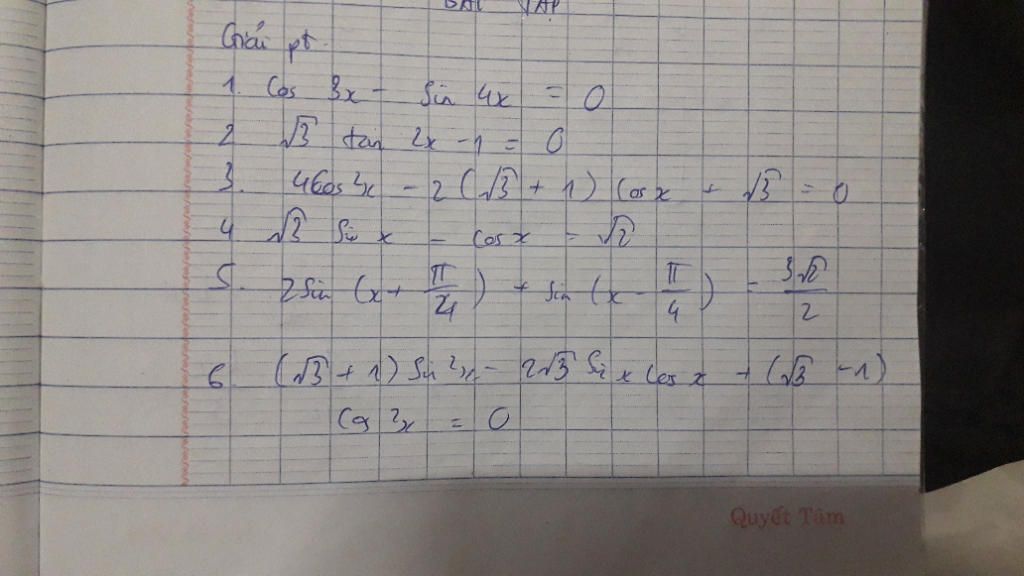 BÀI TẬP
Giải pt.
1. Cos 3x - Sin 4x = 0
2 √3 tan 2x - 1 = 0
3. 4Cos²x - 2 (√3 + 1) Cos x + √3 = 0
4 √3 Sin x - cos x = √2
5. 2Sin (x + π/4) + sin (x - π/4) = 3√2/2
6. (√3 + 1) Sin²x - 2√3 Sin x Cos x + (√3 - 1)
Cos²x = 0
Quyết Tâm